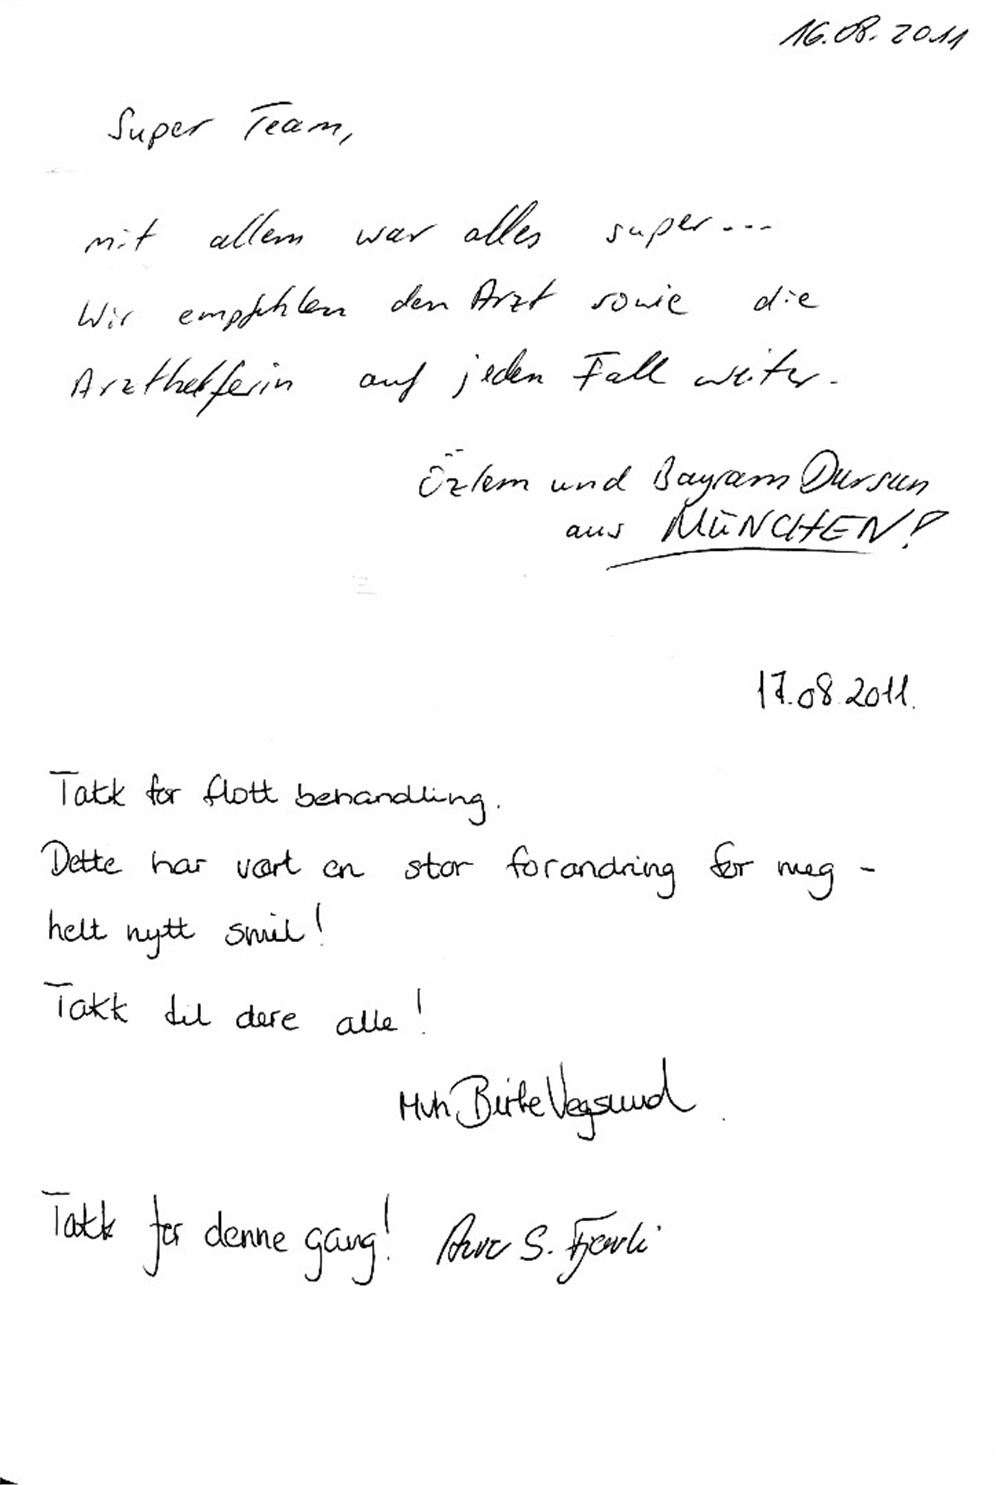 16.08.2011
Super Team,
mit allem war alles super...
Wir empfehlen den Arzt sowie die
Arzthelferin auf jeden Fall weiter.
Özlem und Bayram Dursun
aus MÜNCHEN!
17.08.2011.
Takk for flott behandling.
Dette har vært en stor forandring for meg -
helt nytt smil!
Takk til dere alle!
Mvh Birte Vegsund
Takk for denne gang! S.